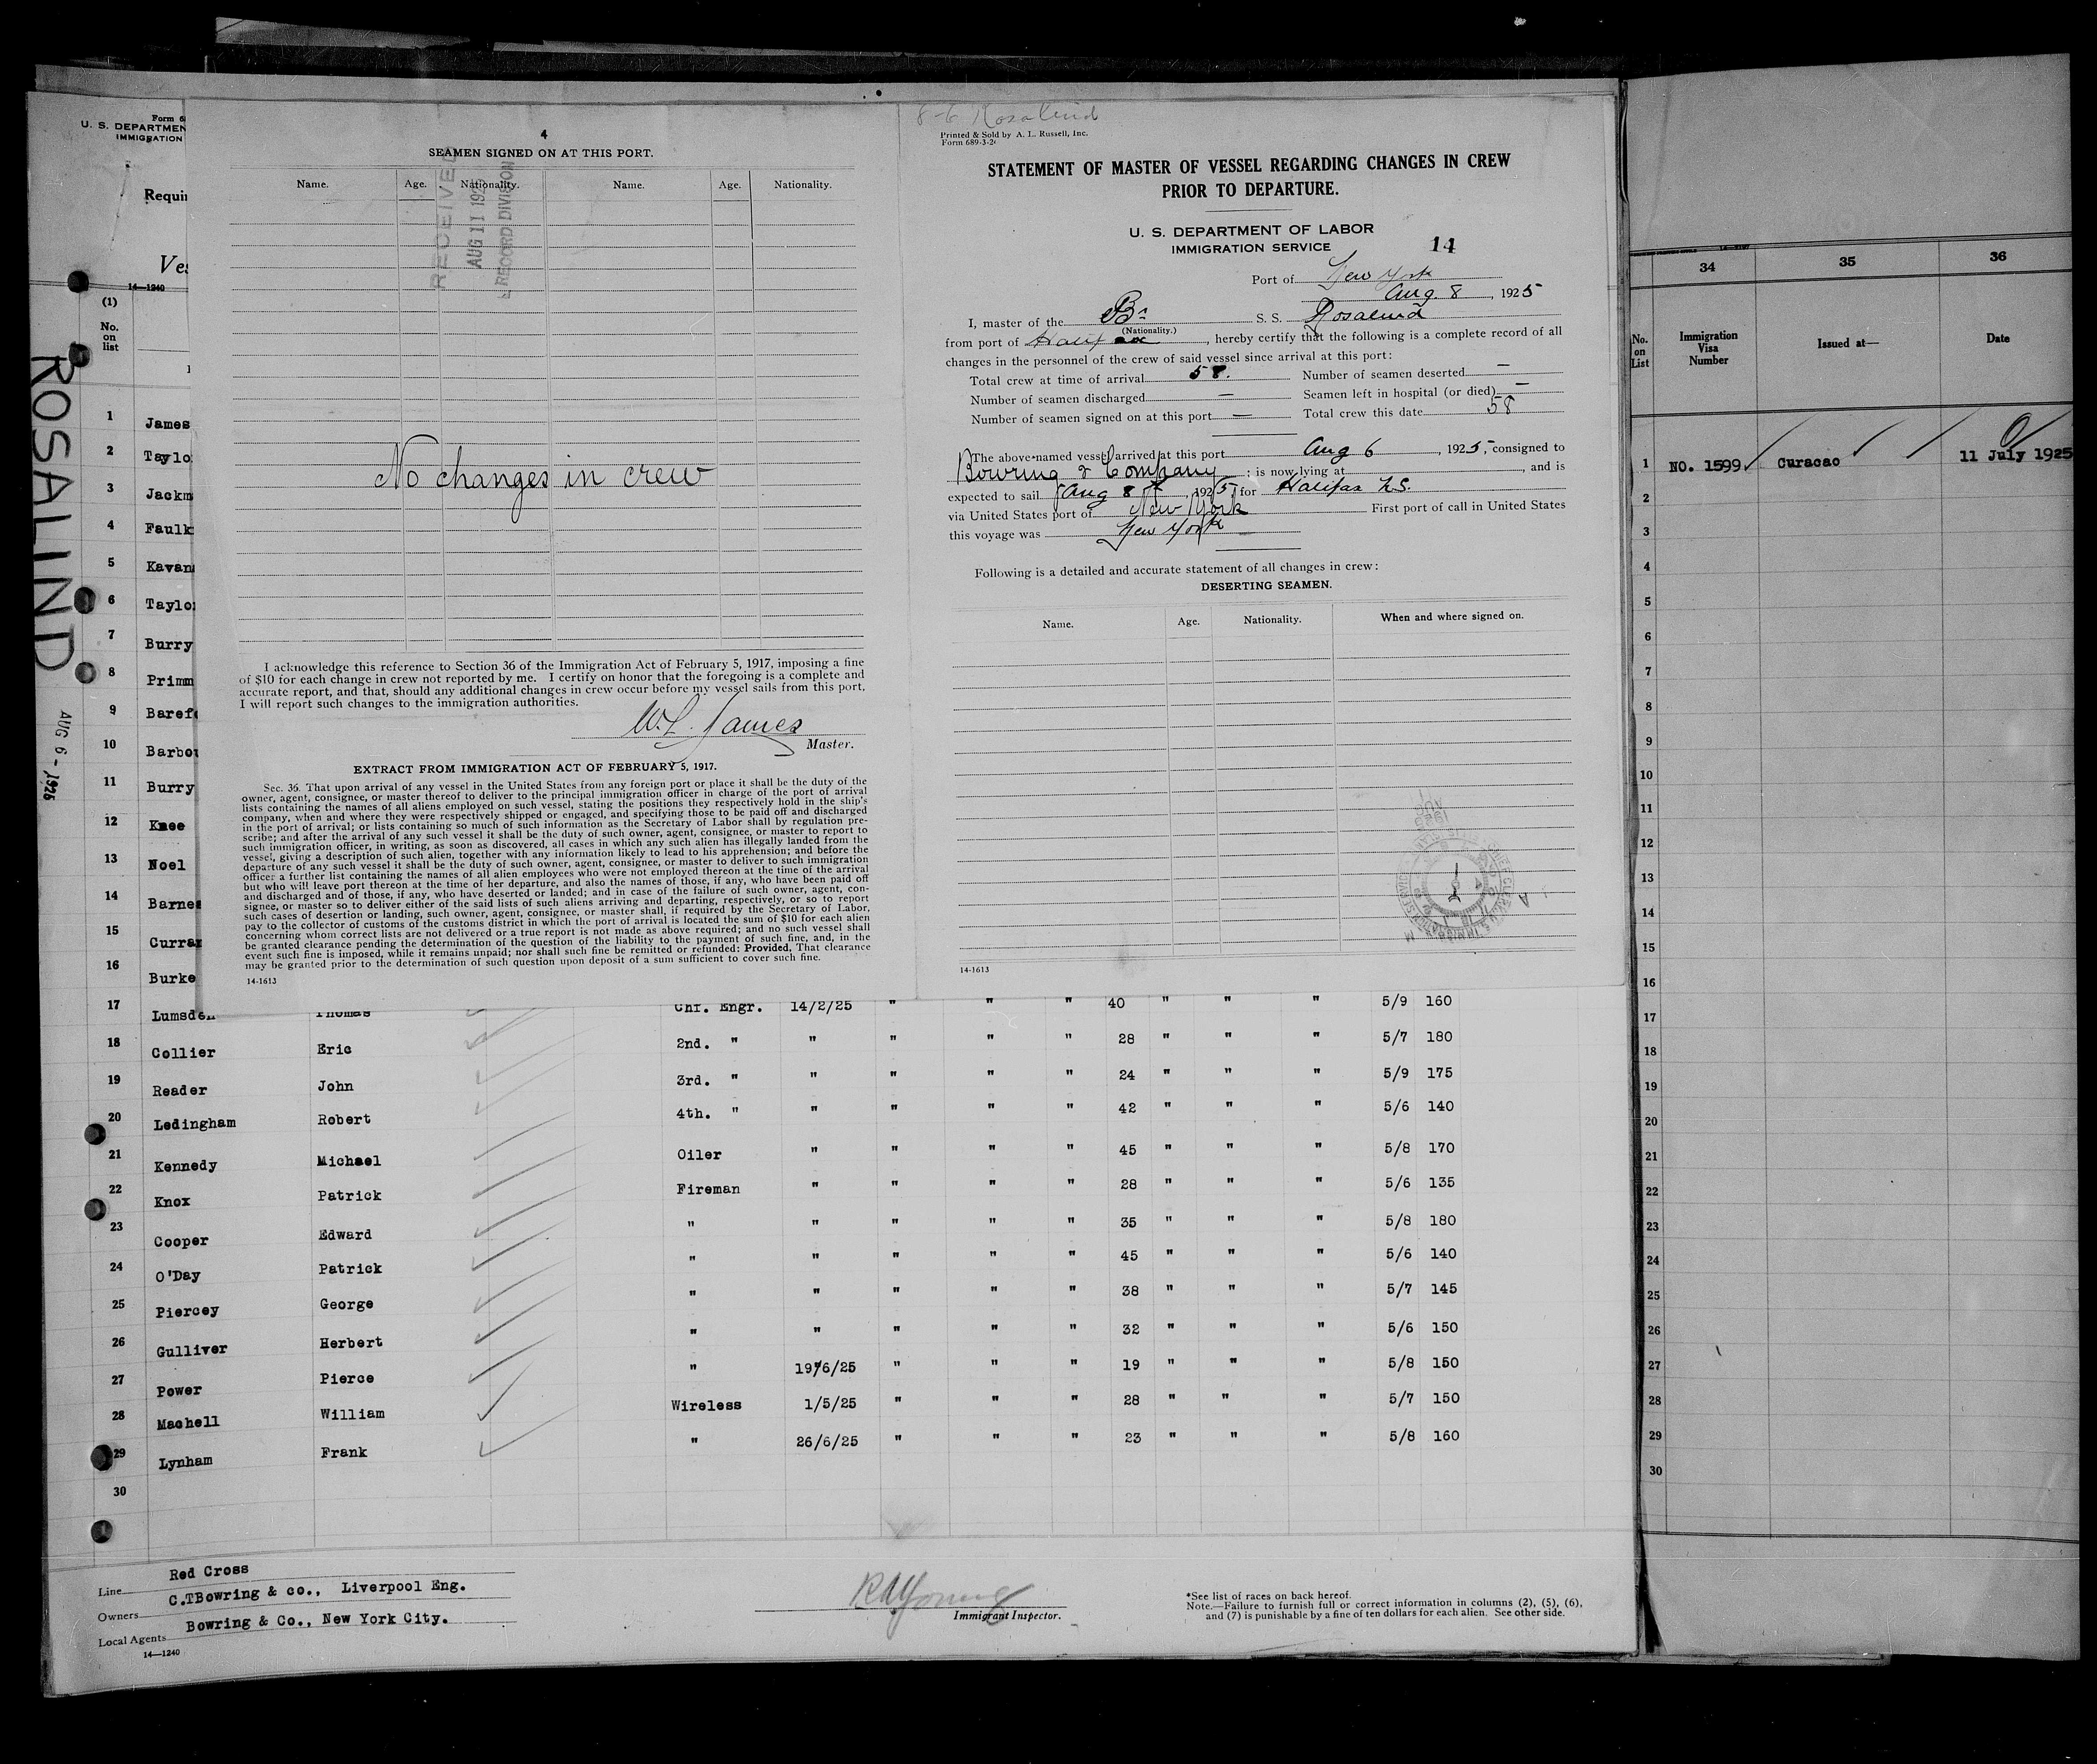 Form 6
U. S. DEPARTMEN
IMMIGRATION
Requi
Ves
14—1240
(1)
No.
on
list
ROSALIND
AUG 6 - 1925
1 James
2 Taylo
3 Jackm
4 Faulk
5 Kavan
6 Taylo
7 Burry
8 Primm
9 Baref
10 Barbo
11 Burry
12 Knee
13 Noel
14 Barnes
15 Curra
16 Burke
4
SEAMEN SIGNED ON AT THIS PORT.
Name. Age. Nationality. Name. Age. Nationality.
RECEIVED
AUG 11 1925
RECORD DIVISION
No changes in crew
I acknowledge this reference to Section 36 of the Immigration Act of February 5, 1917, imposing a fine
of $10 for each change in crew not reported by me. I certify on honor that the foregoing is a complete and
accurate report, and that, should any additional changes in crew occur before my vessel sails from this port,
I will report such changes to the immigration authorities.
W. L. James
Master.
EXTRACT FROM IMMIGRATION ACT OF FEBRUARY 5, 1917.
Sec. 36. That upon arrival of any vessel in the United States from any foreign port or place it shall be the duty of the
owner, agent, consignee, or master thereof to deliver to the principal immigration officer in charge of the port of arrival
lists containing the names of all aliens employed on such vessel, stating the positions they respectively hold in the ship's
company, when and where they were respectively shipped or engaged, and specifying those to be paid off and discharged
in the port of arrival; or lists containing so much of such information as the Secretary of Labor shall by regulation pre-
scribe; and after the arrival of any such vessel it shall be the duty of such owner, agent, consignee, or master to report to
such immigration officer, in writing, as soon as discovered, all cases in which any such alien has illegally landed from the
vessel, giving a description of such alien, together with any information likely to lead to his apprehension; and before the
departure of any such vessel it shall be the duty of such owner, agent, consignee, or master to deliver to such immigration
officer a further list containing the names of all alien employees who were not employed thereon at the time of the arrival
but who will leave port thereon at the time of her departure, and also the names of those, if any, who have been paid off
and discharged and of those, if any, who have deserted or landed; and in case of the failure of such owner, agent, con-
signee, or master so to deliver either of the said lists of such aliens arriving and departing, respectively, or so to report
such cases of desertion or landing, such owner, agent, consignee, or master shall, if required by the Secretary of Labor,
pay to the collector of customs of the customs district in which the port of arrival is located the sum of $10 for each alien
concerning whom correct lists are not delivered or a true report is not made as above required; and no such vessel shall
be granted clearance pending the determination of the question of the liability to the payment of such fine, and, in the
event such fine is imposed, while it remains unpaid; nor shall such fine be remitted or refunded: Provided, That clearance
may be granted prior to the determination of such question upon deposit of a sum sufficient to cover such fine.
14-1613
8-6 Rosalind
Printed & Sold by A. L. Russell, Inc.
Form 689-3-2
STATEMENT OF MASTER OF VESSEL REGARDING CHANGES IN CREW
PRIOR TO DEPARTURE.
U. S. DEPARTMENT OF LABOR
IMMIGRATION SERVICE 14
Port of New York
Aug. 8, 1925
I, master of the Br S. S. Rosalind
(Nationality.)
from port of Halifax, hereby certify that the following is a complete record of all
changes in the personnel of the crew of said vessel since arrival at this port:
Total crew at time of arrival 58. Number of seamen deserted —
Number of seamen discharged — Seamen left in hospital (or died) —
Number of seamen signed on at this port — Total crew this date 58
The above-named vessel arrived at this port Aug 6, 1925, consigned to
Bowring & Company; is now lying at , and is
expected to sail Aug 8, 1925, for Halifax N.S.
via United States port of New York First port of call in United States
this voyage was New York
Following is a detailed and accurate statement of all changes in crew:
DESERTING SEAMEN.
Name. Age. Nationality. When and where signed on.
14-1613
17 Lumsden Thomas Chf. Engr. 14/2/25 " " " 40 " " " 5/9 160
18 Collier Eric 2nd. " " " " " 28 " " " 5/7 180
19 Reader John 3rd. " " " " " 24 " " " 5/9 175
20 Ledingham Robert 4th. " " " " " 42 " " " 5/6 140
21 Kennedy Michael Oiler " " " " 45 " " " 5/8 170
22 Knox Patrick Fireman " " " " 28 " " " 5/6 135
23 Cooper Edward " " " " " 35 " " " 5/8 180
24 O'Day Patrick " " " " " 45 " " " 5/6 140
25 Piercey George " " " " " 38 " " " 5/7 145
26 Gulliver Herbert " " " " " 32 " " " 5/6 150
27 Power Pierce " 19/6/25 " " " 19 " " " 5/8 150
28 Machell William Wireless 1/5/25 " " " 28 " " " 5/7 150
29 Lynham Frank " 26/6/25 " " " 23 " " " 5/8 160
30
Line Red Cross
Owners C.TBowring & co., Liverpool Eng.
Local Agents Bowring & Co., New York City.
14—1240
Immigrant Inspector.
*See list of races on back hereof.
Note.—Failure to furnish full or correct information in columns (2), (5), (6),
and (7) is punishable by a fine of ten dollars for each alien. See other side.
34 35 36
No.
on
List
Immigration
Visa
Number
Issued at— Date
1 NO. 1599 Curacao 11 July 1925
2
3
4
5
6
7
8
9
10
11
12
13
14
15
16
17
18
19
20
21
22
23
24
25
26
27
28
29
30